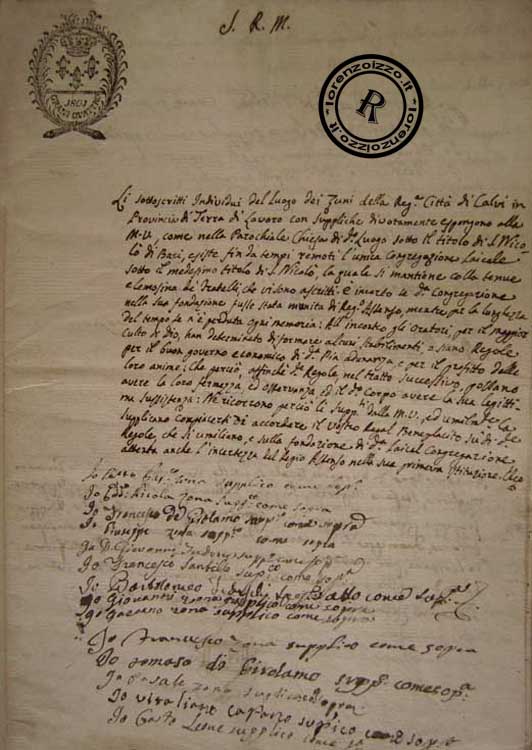 S. R. M.
1801
lorenzoizzo.it
lorenzoizzo.it
R
Li sottoscritti Individui del Luogo dei Zuni della Reg.ª Città di Calvi in
Provincia di Terra di Lavoro con suppliche divotamente espongono alla
M.V., come nella Parochiale Chiesa di d.º Luogo sotto il titolo di S. Nico
lò di Bari, esiste fin da tempi remoti l'unica Congregazione Laicale
sotto il medesimo titolo di S. Nicolò, la quale si mantiene colla tenue
elemosina de' Fratelli, che vi sono ascritti. È incerto se d.ª Congregazione
nella sua fondazione fusse stata munita di Reg.º Assenso, mentre per la lunghezza
del tempo se n'è perduta ogni memoria: All'incontro gli Oratori, per il maggior
culto di Dio, han determinato di formare alcuni stabilimenti, o siano Regole
per il buon governo economico di d.ª Pia adunanza, e per il profitto delle
loro anime; che perciò, affinchè d.e Regole, nel tratto successivo, possano
avere la loro fermezza, ed osservanza, ed il d.º Corpo avere la sua legitti
ma sussistenza: Ne ricorrono perciò li supp.ti dalla M.V., ed umilmente la
supplicano compiacersi di accordare il vostro Real Beneplacito sui d.e
Regole, che si umiliano, e sulla fondazione di d.ª Laical Congregazione
attenta anche l'incertezza del Regio Assenso nella sua primiera Istituzione.
Io zona supplico come sop.ª
Io Nicola zona supp.co come sopra
Io Francesco de Girolamo supp.co come sopra
Io Giuseppe zona supp.co come sopra
Io D. Giovanni supp.co come sop.ª
Io Francesco Santillo supp.co come sop.ª
Io Bartolomeo come sop.ª
Io Giovanni zona supplico come sopra
Io Gaetano zona supplico come sopra
Io Francesco zona supplico come sopra
Io Tomaso di Girolamo supp.º come sop.ª
Io Pasale zona suplico come sopra
Io vitaliano caparzo suplico come sopra
Io Leone supplico come sopra